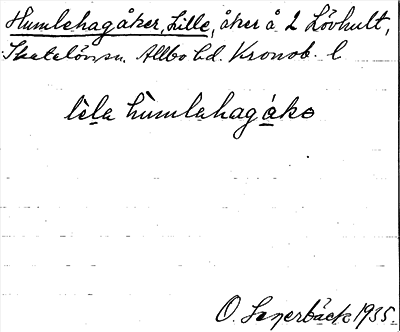 Humlehagåker, Lille, åker å 2 Lövhult,
Skatelövs sn. Allbo hd. Kronob. l
lìla hùmlahagàkɘ
O. Lagerbäck 1935.